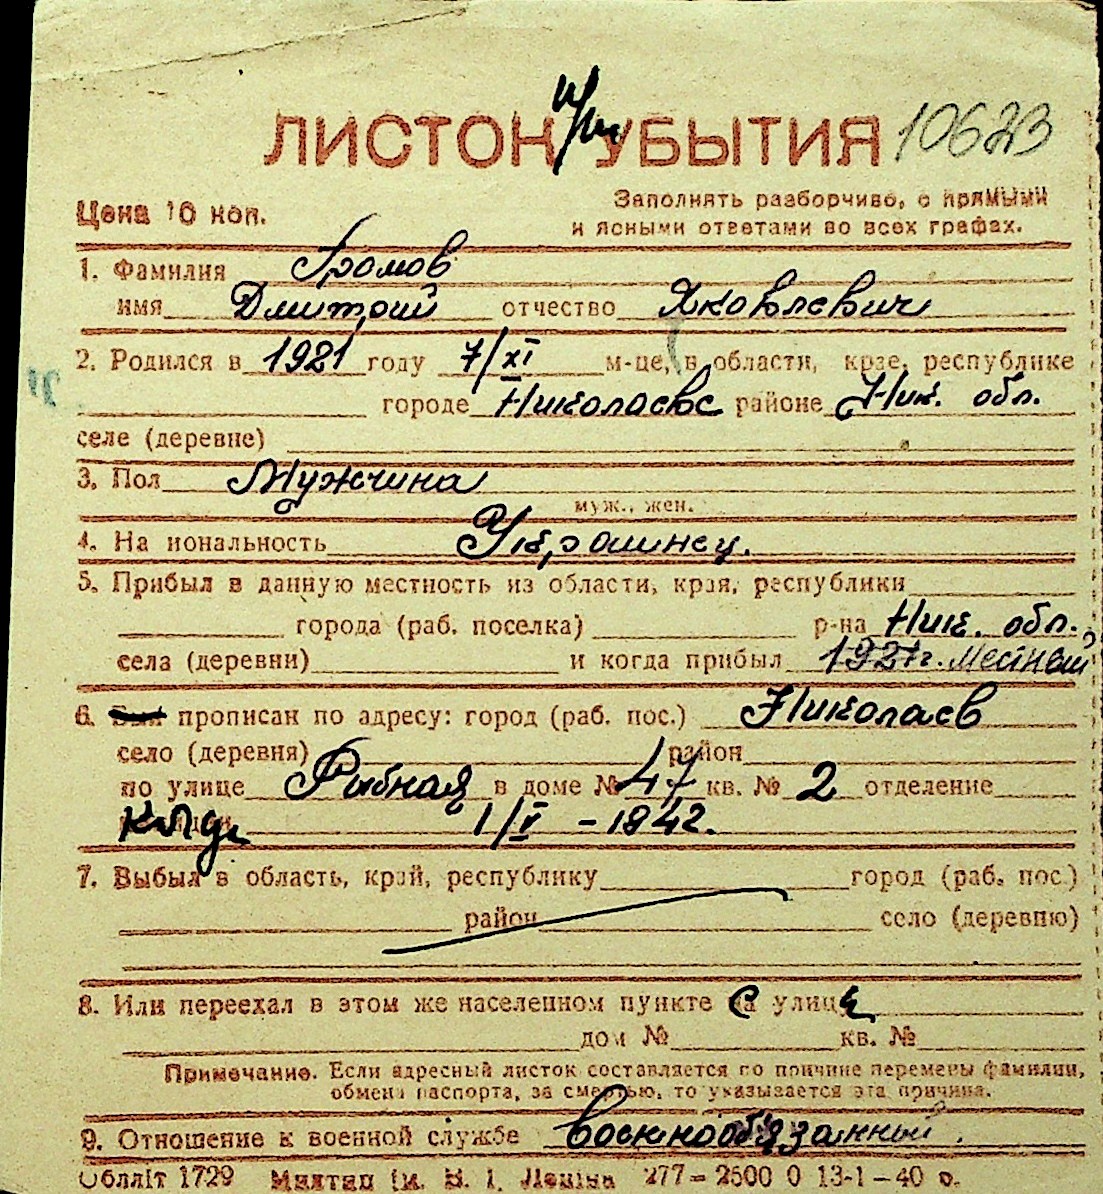 ЛИСТОК УБЫТИЯ 10623
Цена 10 коп.
Заполнять разборчиво, с прямыми
и ясными ответами во всех графах.
1. Фамилия Громов
имя Дмитрий отчество Яковлевич
2. Родился в 1921 году 7/XI м-це, в области, крае, республике
городе Николаеве районе Ник. обл.
селе (деревне)
3. Пол Мужчина
муж., жен.
4. На иональность Украинец.
5. Прибыл в данную местность из области, края, республики
города (раб. поселка) р-на Ник. обл.
села (деревни) и когда прибыл 1921г. местный
6. прописан по адресу: город (раб. пос.) Николаев
село (деревня) район
по улице Рыбная в доме № 47 кв. № 2 отделение
1/V - 1942.
7. Выбыл в область, край, республику город (раб. пос.)
район село (деревню)
8. Или переехал в этом же населенном пункте с улице
дом № кв. №
Примечание. Если адресный листок составляется по причине перемены фамилии,
обмена паспорта, за смертью, то указывается эта причина.
9. Отношение к военной службе военнообязанный.
Облліт 1729 ім. В. І. Леніна 277—2500 0 13-1-40 р.